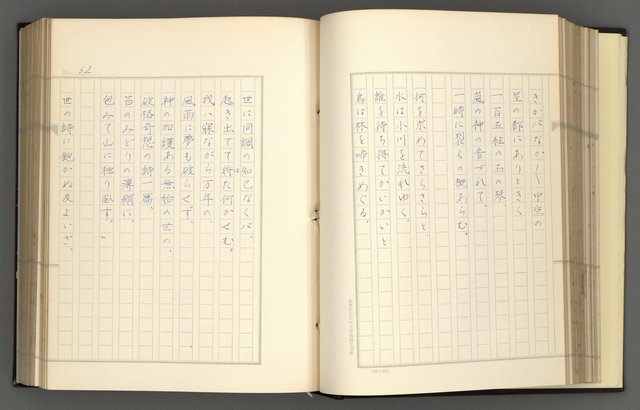 きかばなかく中空の
星の影にありときく
一百五絃の玉の琴、
嵐の神の音づれて、
一時に裂くの概あらむ。
何を求めてさらさらと、
水は小川を流れゆく、
誰を待ち得てかいかいと
鳥は林を啼きめぐる、
No. 62
世に同調の知己なくバ、
起き出でて将た何かせむ。
我ハ寐ながら万年の、
風雨に夢も破らせず、
神の加護ある無始の世の、
波瀾奇想の詩一篇、
苔のみどりの薄絹に、
包みて山に独り臥す。」
世の詩に飽かぬ友よいざ、